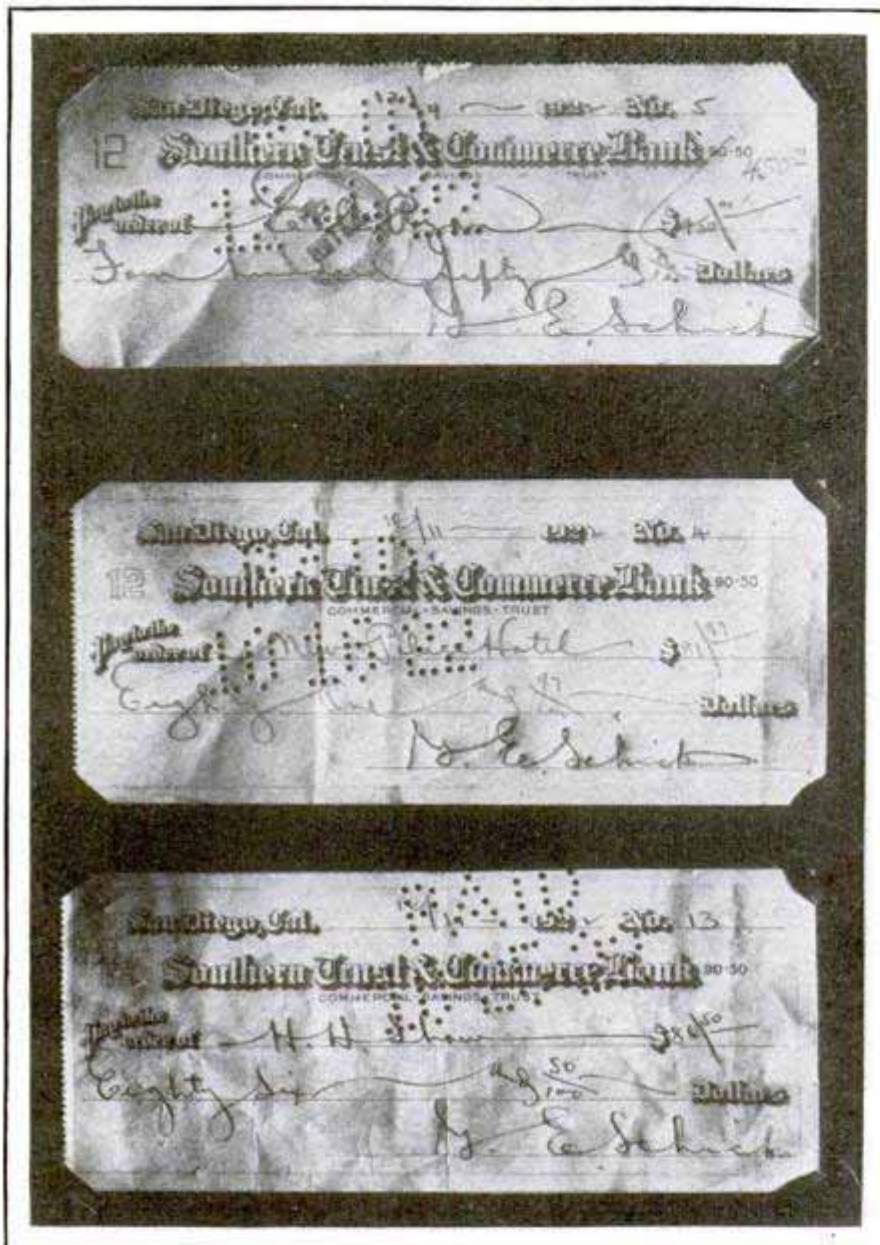 San Diego, Cal. 192 No. 5
12 Southern Trust & Commerce Bank 90-50
COMMERCIAL SAVINGS TRUST
450
Pay to the
order of $450
Four hundred fifty Dollars
G. E. Schick
San Diego, Cal. 12/11 192 No. 4
12 Southern Trust & Commerce Bank 90-50
COMMERCIAL-SAVINGS-TRUST
Pay to the
order of New Palace Hotel $81
Eighty one Dollars
G. E. Schick
PAID
San Diego, Cal. 192 No. 13
Southern Trust & Commerce Bank 90-50
COMMERCIAL-SAVINGS-TRUST
Pay to the
order of H. H. $86 50
Eighty Six 50/100 Dollars
G. E. Schick